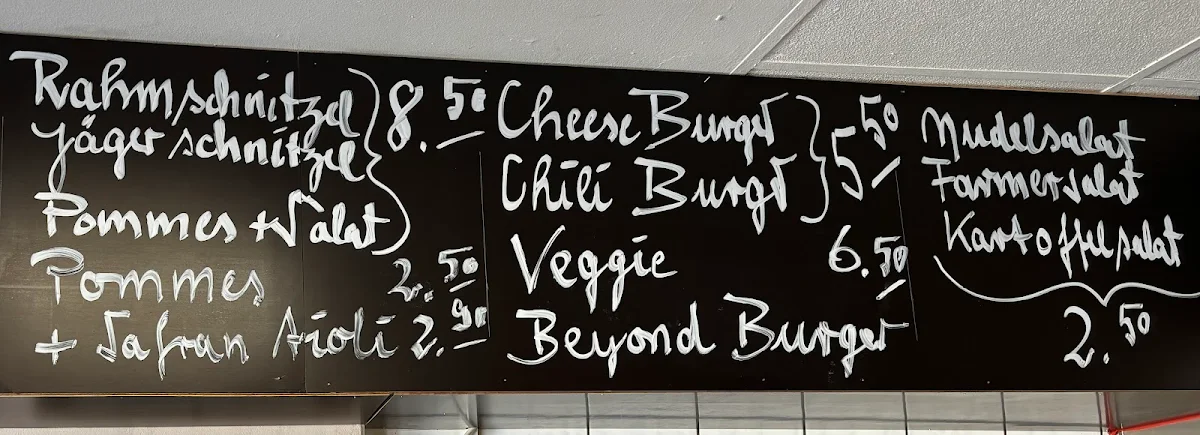 Rahmschnitzel
Jägerschnitzel
Pommes + Salat
8.50
Pommes 2.50
+ Safran Aioli 2.90
Cheese Burger
Chili Burger
5.50
Veggie 6.50
Beyond Burger
Nudelsalat
Farmersalat
Kartoffelsalat
2.50